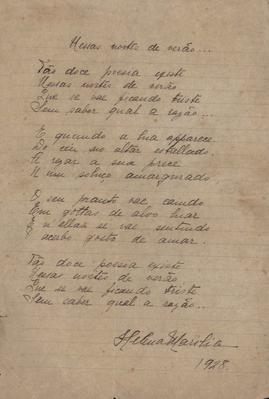 Nessas noites de verão...
Tão doce poesia existe
Nessas noites de verão
Que se vae ficando triste
Sem saber qual a razão...
E quando a lua apparece
Do céu no altar estrellado
A rezar a sua prece
N'um soluço amargurado
E seu pranto vae caindo
Em gottas de alvo luar
E n'ellas se vae sentindo
O acabo gosto de amar.
Tão doce poesia existe
Nessas noites de verão
Que se vae ficando triste
Sem saber qual a razão...
Helena Marilia
1928